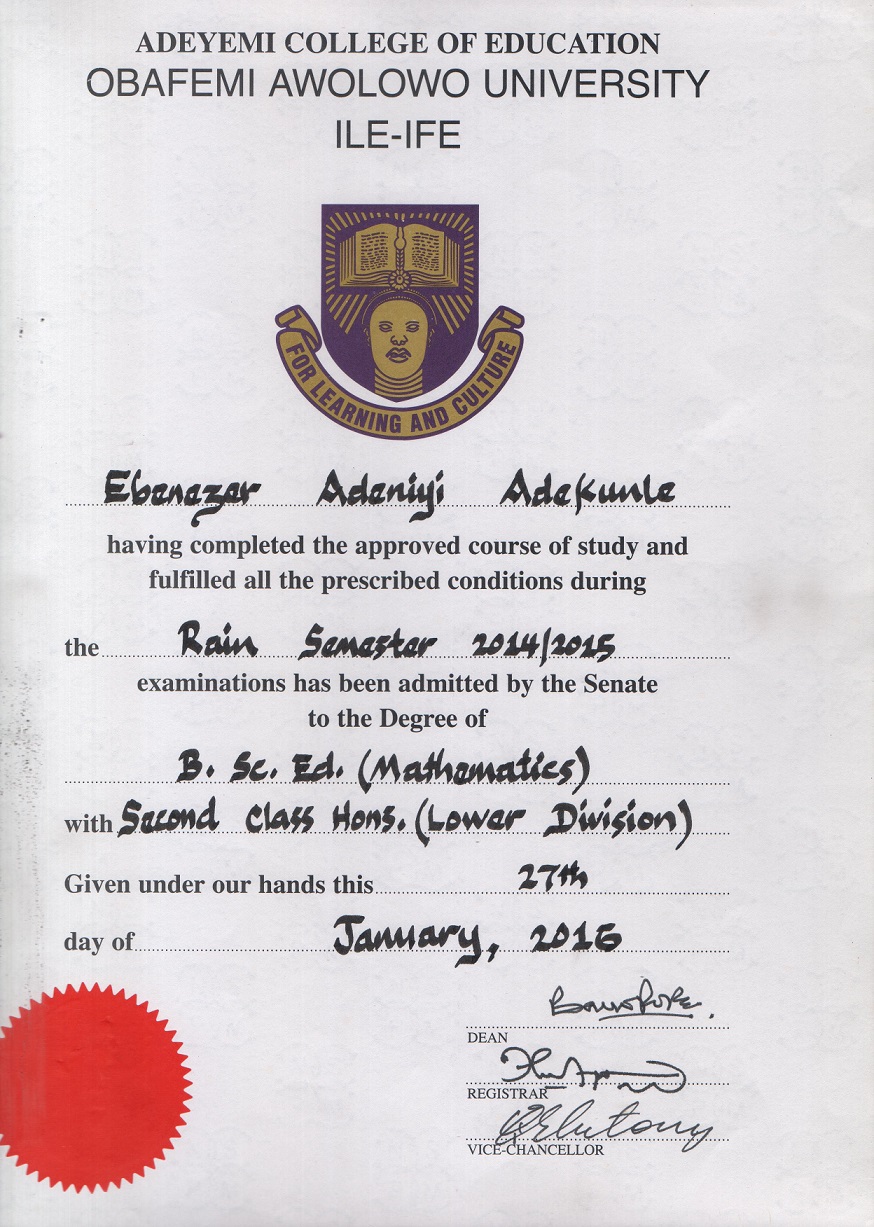 ADEYEMI COLLEGE OF EDUCATION
OBAFEMI AWOLOWO UNIVERSITY
ILE-IFE
FOR LEARNING AND CULTURE
Ebenezer Adeniyi Adekunle
having completed the approved course of study and
fulfilled all the prescribed conditions during
the Rain Semester 2014/2015
examinations has been admitted by the Senate
to the Degree of
B. Sc. Ed. (Mathematics)
with Second Class Hons. (Lower Division)
Given under our hands this 27th
day of January, 2016
DEAN
REGISTRAR
VICE-CHANCELLOR